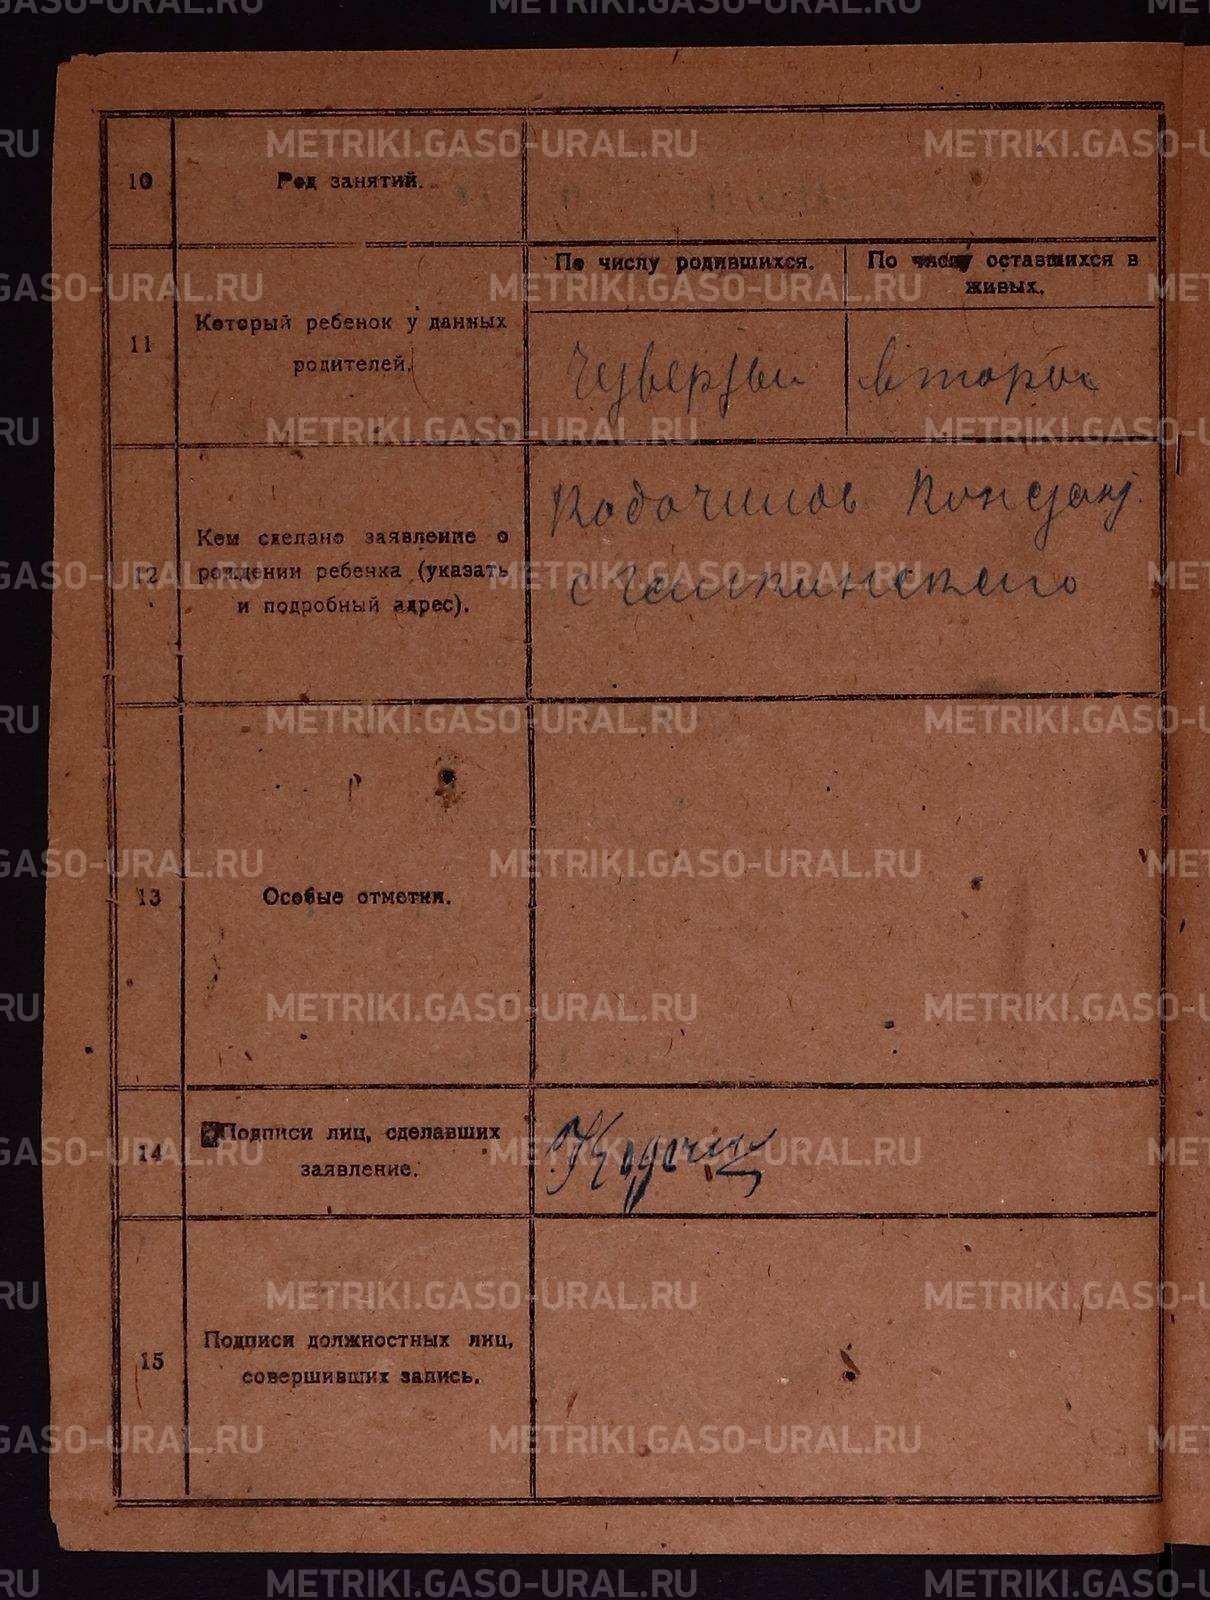 10
Род занятий.
11
Который ребенок у данных
родителей.
По числу родившихся.
По числу оставшихся в
живых.
Четвертый
второй
12
Кем сделано заявление о
рождении ребенка (указать
и подробный адрес).
Кодочигов Констант.
с
13
Особые отметки.
14
Подписи лиц, сделавших
заявление.
15
Подписи должностных лиц,
совершивших запись.
METRIKI.GASO-URAL.RU